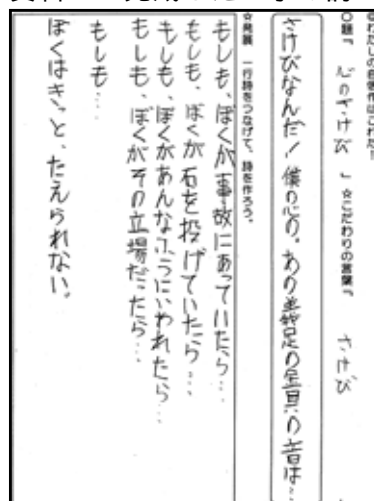 ◎わたしの自信作はこれだ！
○題「心のさけび」☆こだわりの言葉「さけび
さけびなんだ！僕の心の。あの義足の金具の音は…
☆発展　一行詩をつなげて、詩を作ろう。
もしも、ぼくが事故にあっていたら…
もしも、ぼくが石を投げていたら…
もしも、ぼくがあんなふうにいわれたら…
もしも、ぼくがその立場だったら…
もしも…
ぼくはきっと、たえられない。